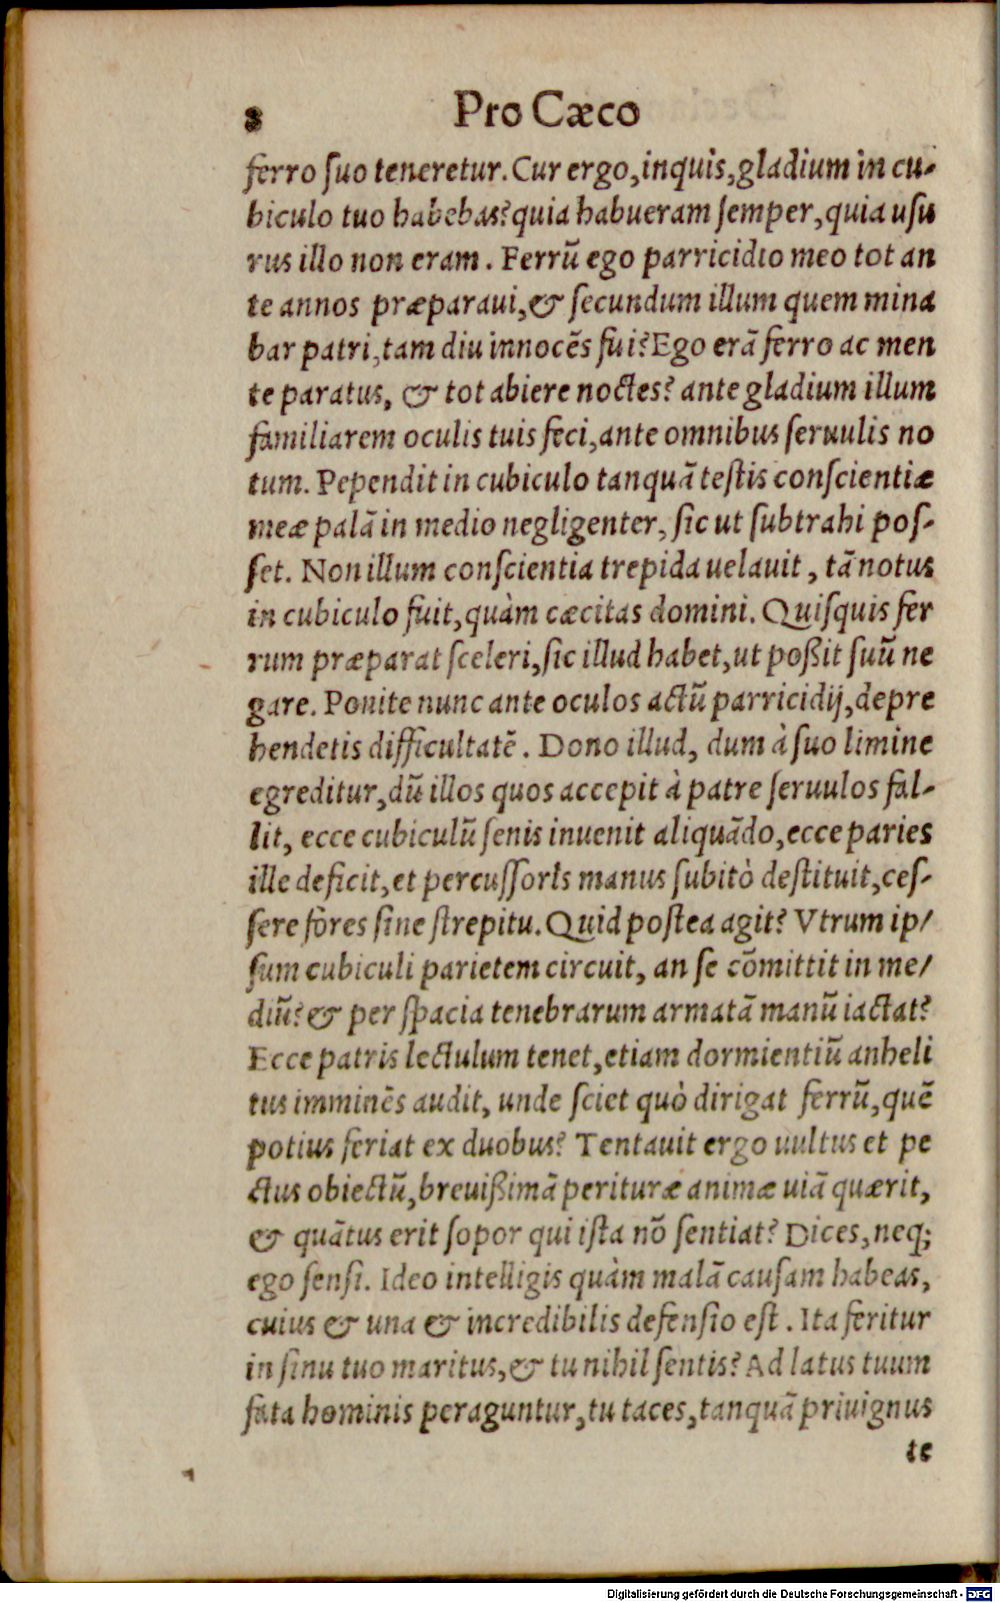 8 Pro Cæco
ferro ſuo teneretur. Cur ergo, inquis, gladium in cu-
biculo tuo habebas? quia habueram ſemper, quia uſu
rus illo non eram. Ferrũ ego parricidio meo tot an
te annos præparaui, & ſecundum illum quem mina
bar patri, tam diu innocẽs fui? Ego erã ferro ac men
te paratus, & tot abiere noctes? ante gladium illum
familiarem oculis tuis feci, ante omnibus ſeruulis no
tum. Pependit in cubiculo tanquã teſtis conſcientiæ
meæ palã in medio negligenter, ſic ut ſubtrahi poſ-
ſet. Non illum conſcientia trepida uelauit, tã notus
in cubiculo fuit, quàm cæcitas domini. Quiſquis fer
rum præparat ſceleri, ſic illud habet, ut poßit ſuũ ne
gare. Ponite nunc ante oculos actũ parricidij, depre
hendetis difficultatẽ. Dono illud, dum à ſuo limine
egreditur, dũ illos quos accepit à patre ſeruulos fal-
lit, ecce cubiculũ ſenis inuenit aliquãdo, ecce paries
ille deficit, et percuſſoris manus ſubitò deſtituit, ceſ-
ſere fores ſine ſtrepitu. Quid poſtea agit? Vtrum ip/
ſum cubiculi parietem circuit, an ſe cõmittit in me/
diũ? & per ſpacia tenebrarum armatã manũ iactat?
Ecce patris lectulum tenet, etiam dormientiũ anheli
tus imminẽs audit, unde ſciet quò dirigat ferrũ, quẽ
potius feriat ex duobus? Tentauit ergo uultus et pe
ctus obiectũ, breuißimã perituræ animæ uiã quærit,
& quãtus erit ſopor qui iſta nõ ſentiat? Dices, neq;
ego ſenſi. Ideo intelligis quàm malã cauſam habeas,
cuius & una & incredibilis defenſio eſt. Ita feritur
in ſinu tuo maritus, & tu nihil ſentis? Ad latus tuum
fata hominis peraguntur, tu taces, tanquã priuignus
te
Digitalisierung gefördert durch die Deutsche Forschungsgemeinschaft - DFG